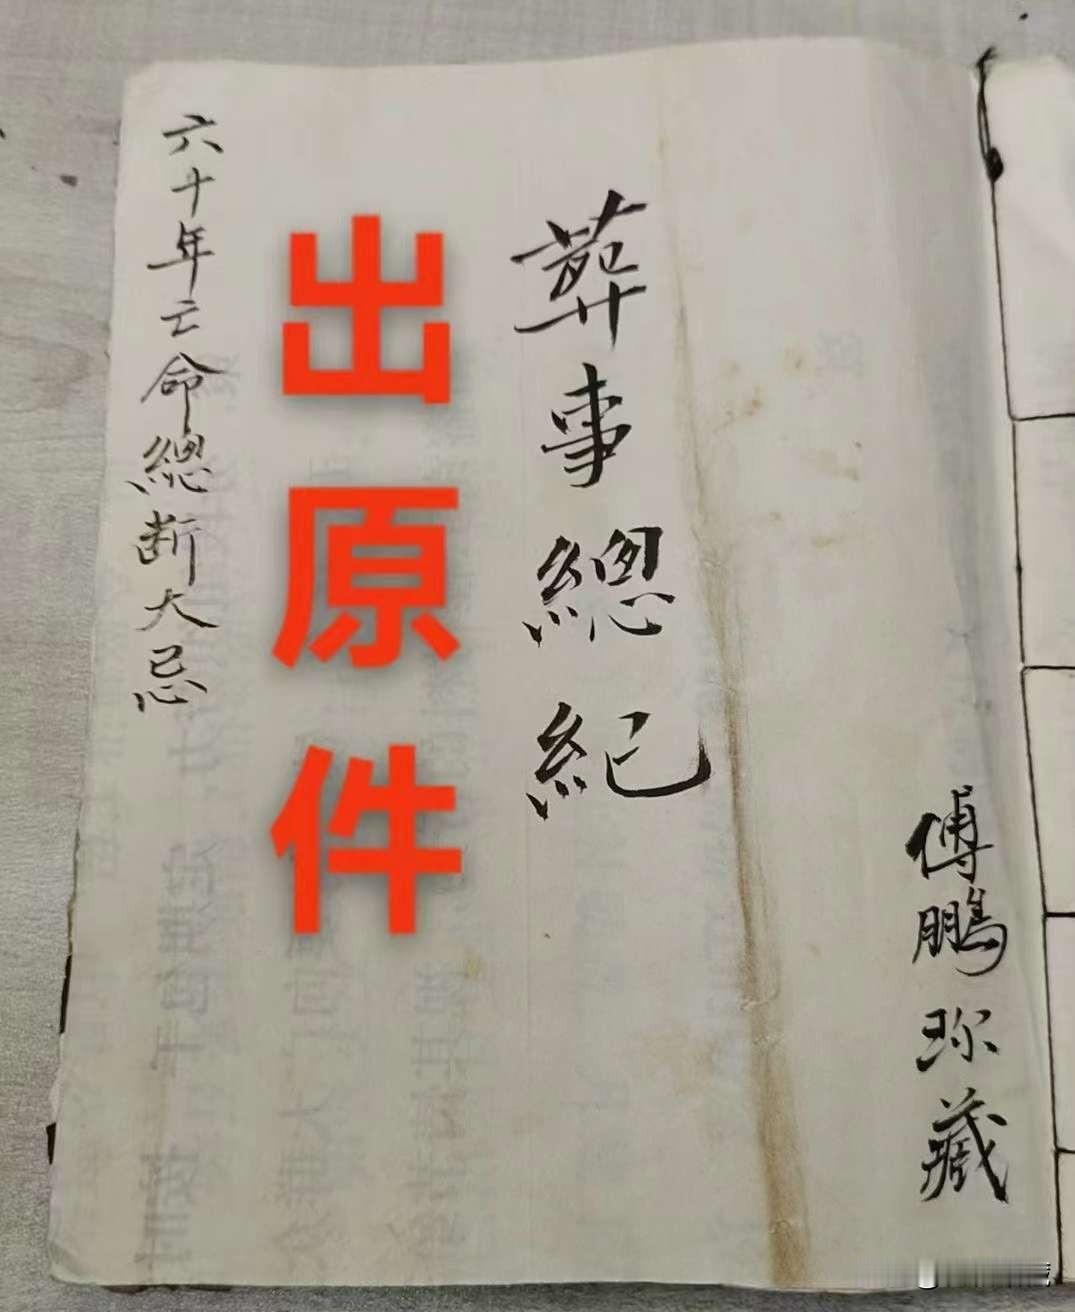 傅鹏珎藏
葬事總紀
出原件
六十年亡命總断大忌